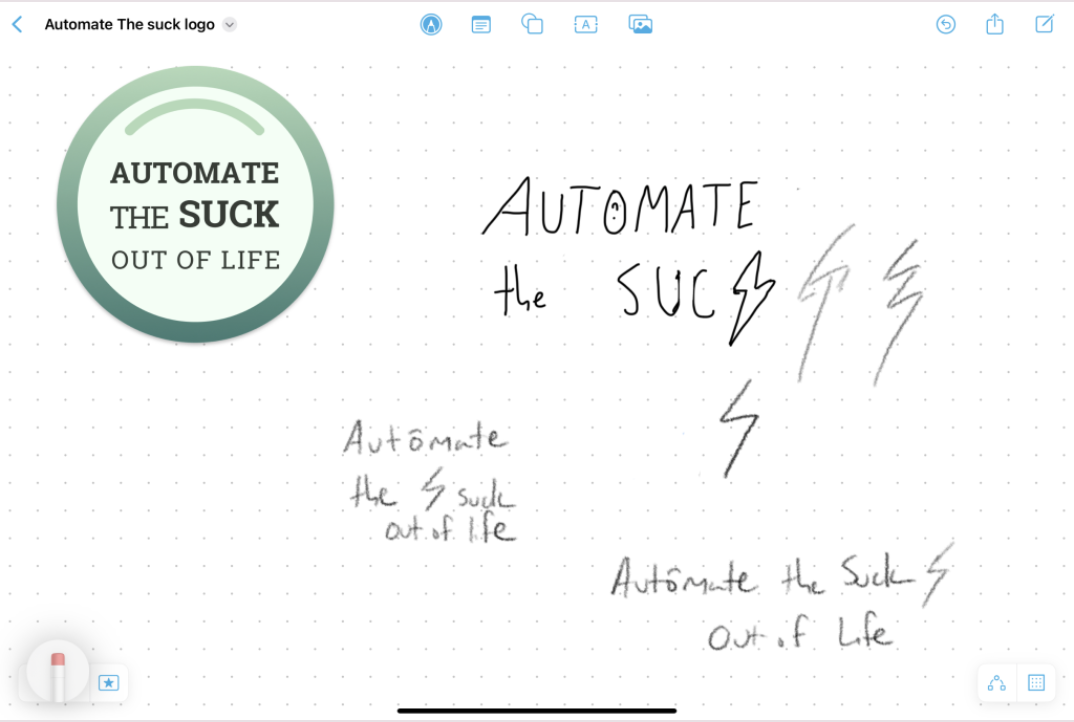 Automate The suck logo
A
AUTOMATE
THE SUCK
OUT OF LIFE
AUTOMATE
the SUC
Automate
the suck
out of life
Automate the Suck
Out of Life